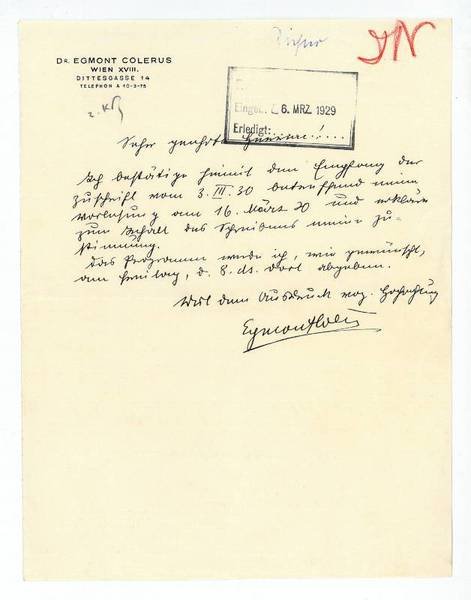 DR. EGMONT COLERUS
WIEN XVIII.
DITTESGASSE 14
TELEPHON A 10-3-75
IN
Einget. 6. MRZ. 1929
Erledigt:
Sehr geehrte Herren!
Ich bestätige hiemit den Empfang der
Zuschrift vom 3. III. 30 betreffend meine
Vorlesung am 16. März 30 und erkläre
zum Inhalt des Schreibens meine Zu-
stimmung.
Das Programm werde ich, wie gewünscht,
am Freitag, d. 8. ds. dort abgeben.
Mit dem Ausdruck vorz. Hochachtung
Egmont Colerus